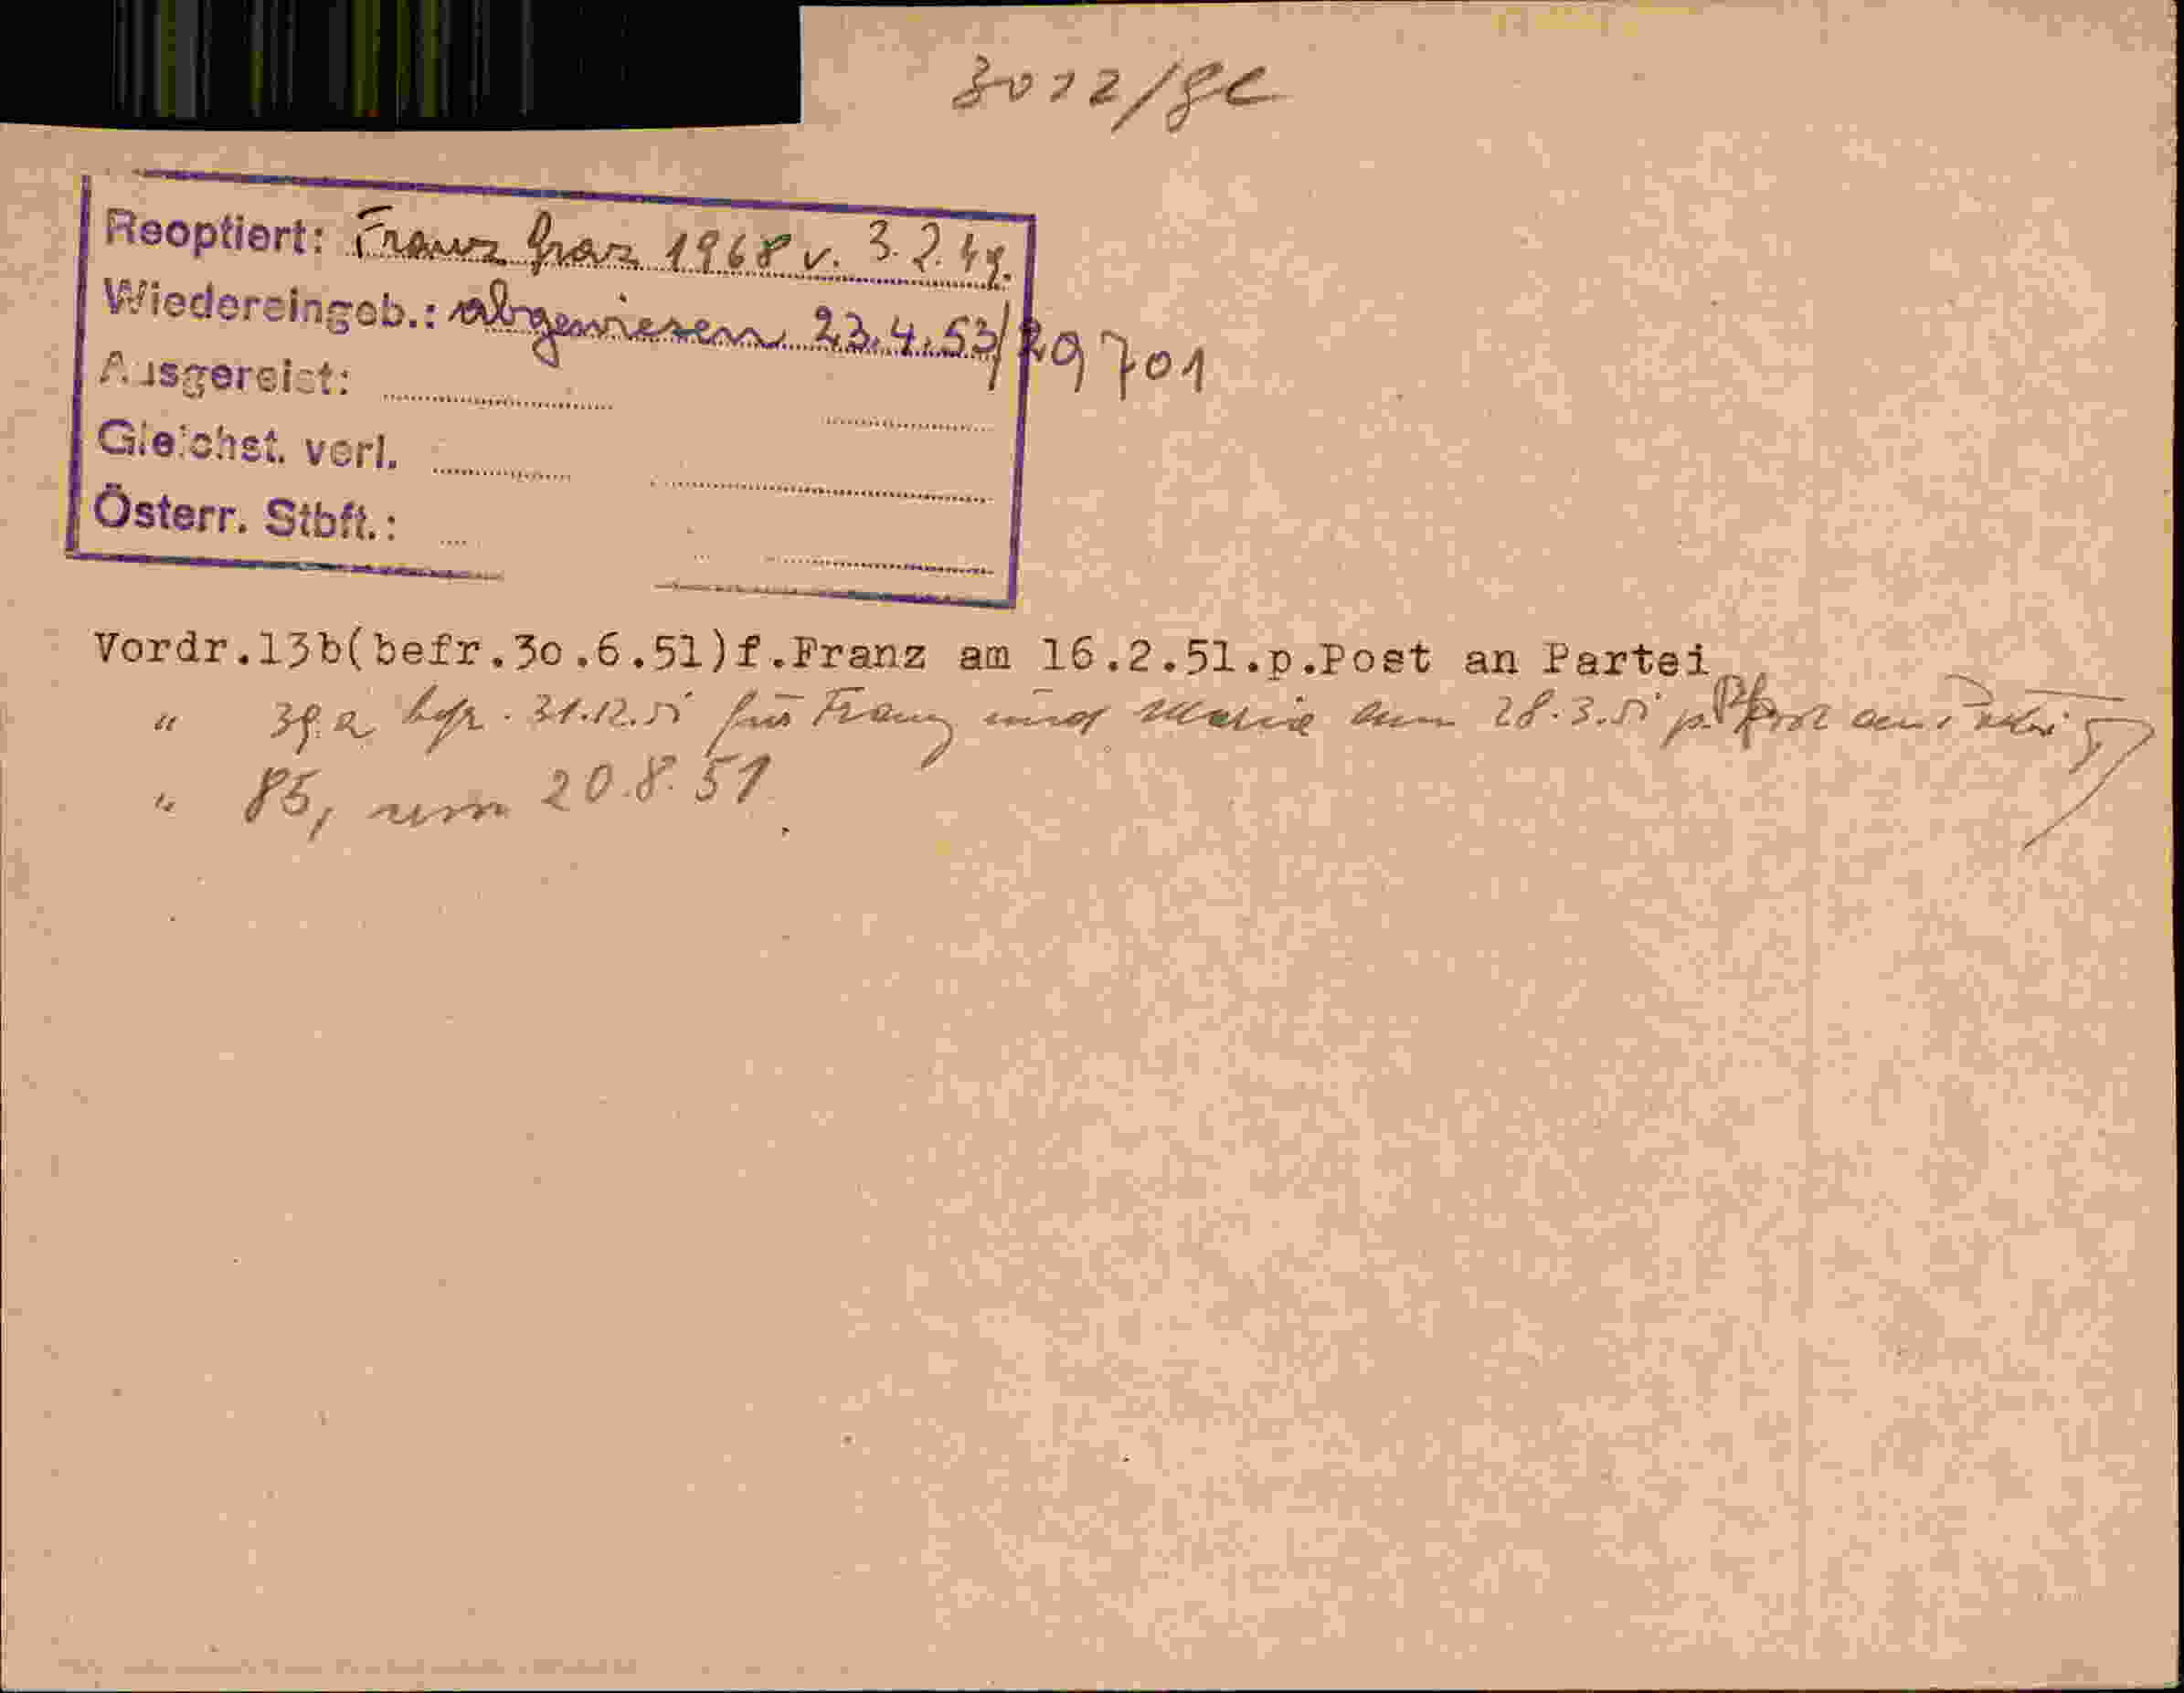 3012/ge
Reoptiert: Franz Graz 1968 v. 3.2.49.
Wiedereingeb.: abgewiesen 23.4.53/29701
Ausgereist:
Gleichst. verl.
Österr. Stbft.:
Vordr.13b(befr.3o.6.51)f.Franz am 16.2.51.p.Post an Partei
" 39a befr. 31.12.51 für Franz und Maria am 28.3.51 p. Post an Partei
" 85, vom 20.8.51.